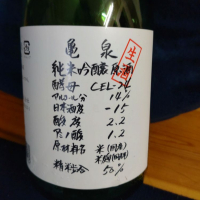 亀泉
生酒
純米吟醸原酒
酵母 CEL-24
アルコール分 14%
日本酒度 -15
酸度 2.2
アミノ酸 1.2
原材料名 米(国産)
米麹(国産米)
精米歩合 50%